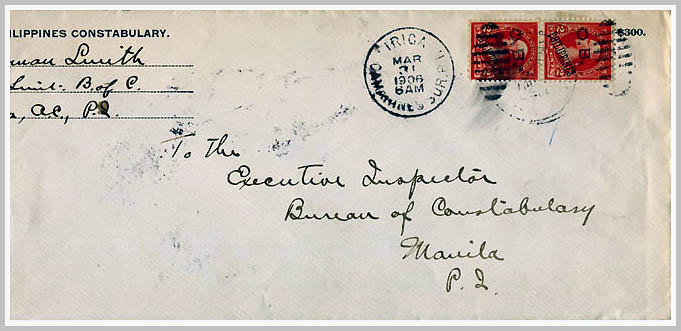 ILIPPINES CONSTABULARY.
man Smith
Luit- B. of C.
a, A.C., P.I.
$300.
IRIGA
MAR
31
1906
6AM
CAMARINES SUR, P.I.
O.B.
PHILIPPINES
O.B.
PHILIPPINES
To the
Executive Inspector
Bureau of Constabulary
Manila
P. I.